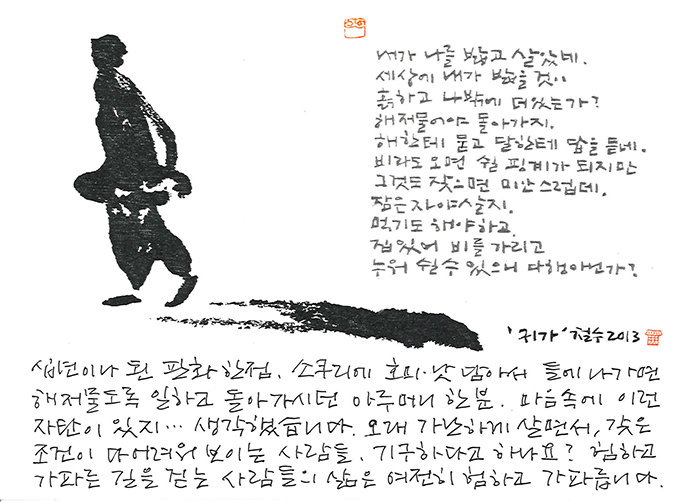 내가 나를 밟고 살았네.
세상에 내가 밟을 것이
흙하고 나밖에 더있는가?
해저물어야 돌아가지.
해한테 묻고 달한테 답을 듣네.
비라도 오면 쉴 핑계가 되지만
그것도 잦으면 미안스럽데.
잠은 자야 살지.
먹기도 해야하고.
집있어 비를 가리고
누워 쉴 수 있으니 다행아닌가?
'귀가' 철수 2013
십년이나 된 판화 한점. 소쿠리에 호미·낫 담아서 들에 나가면
해저물도록 일하고 돌아가시던 아주머니 한분. 마음속에 이런
자탄이 있지… 생각했습니다. 오래 가난하게 살면서, 갖은
조건이 다 어려워 보이는 사람들. 기구하다고 하나요? 험하고
가파른 길을 걷는 사람들의 삶은 여전히 험하고 가파릅니다.